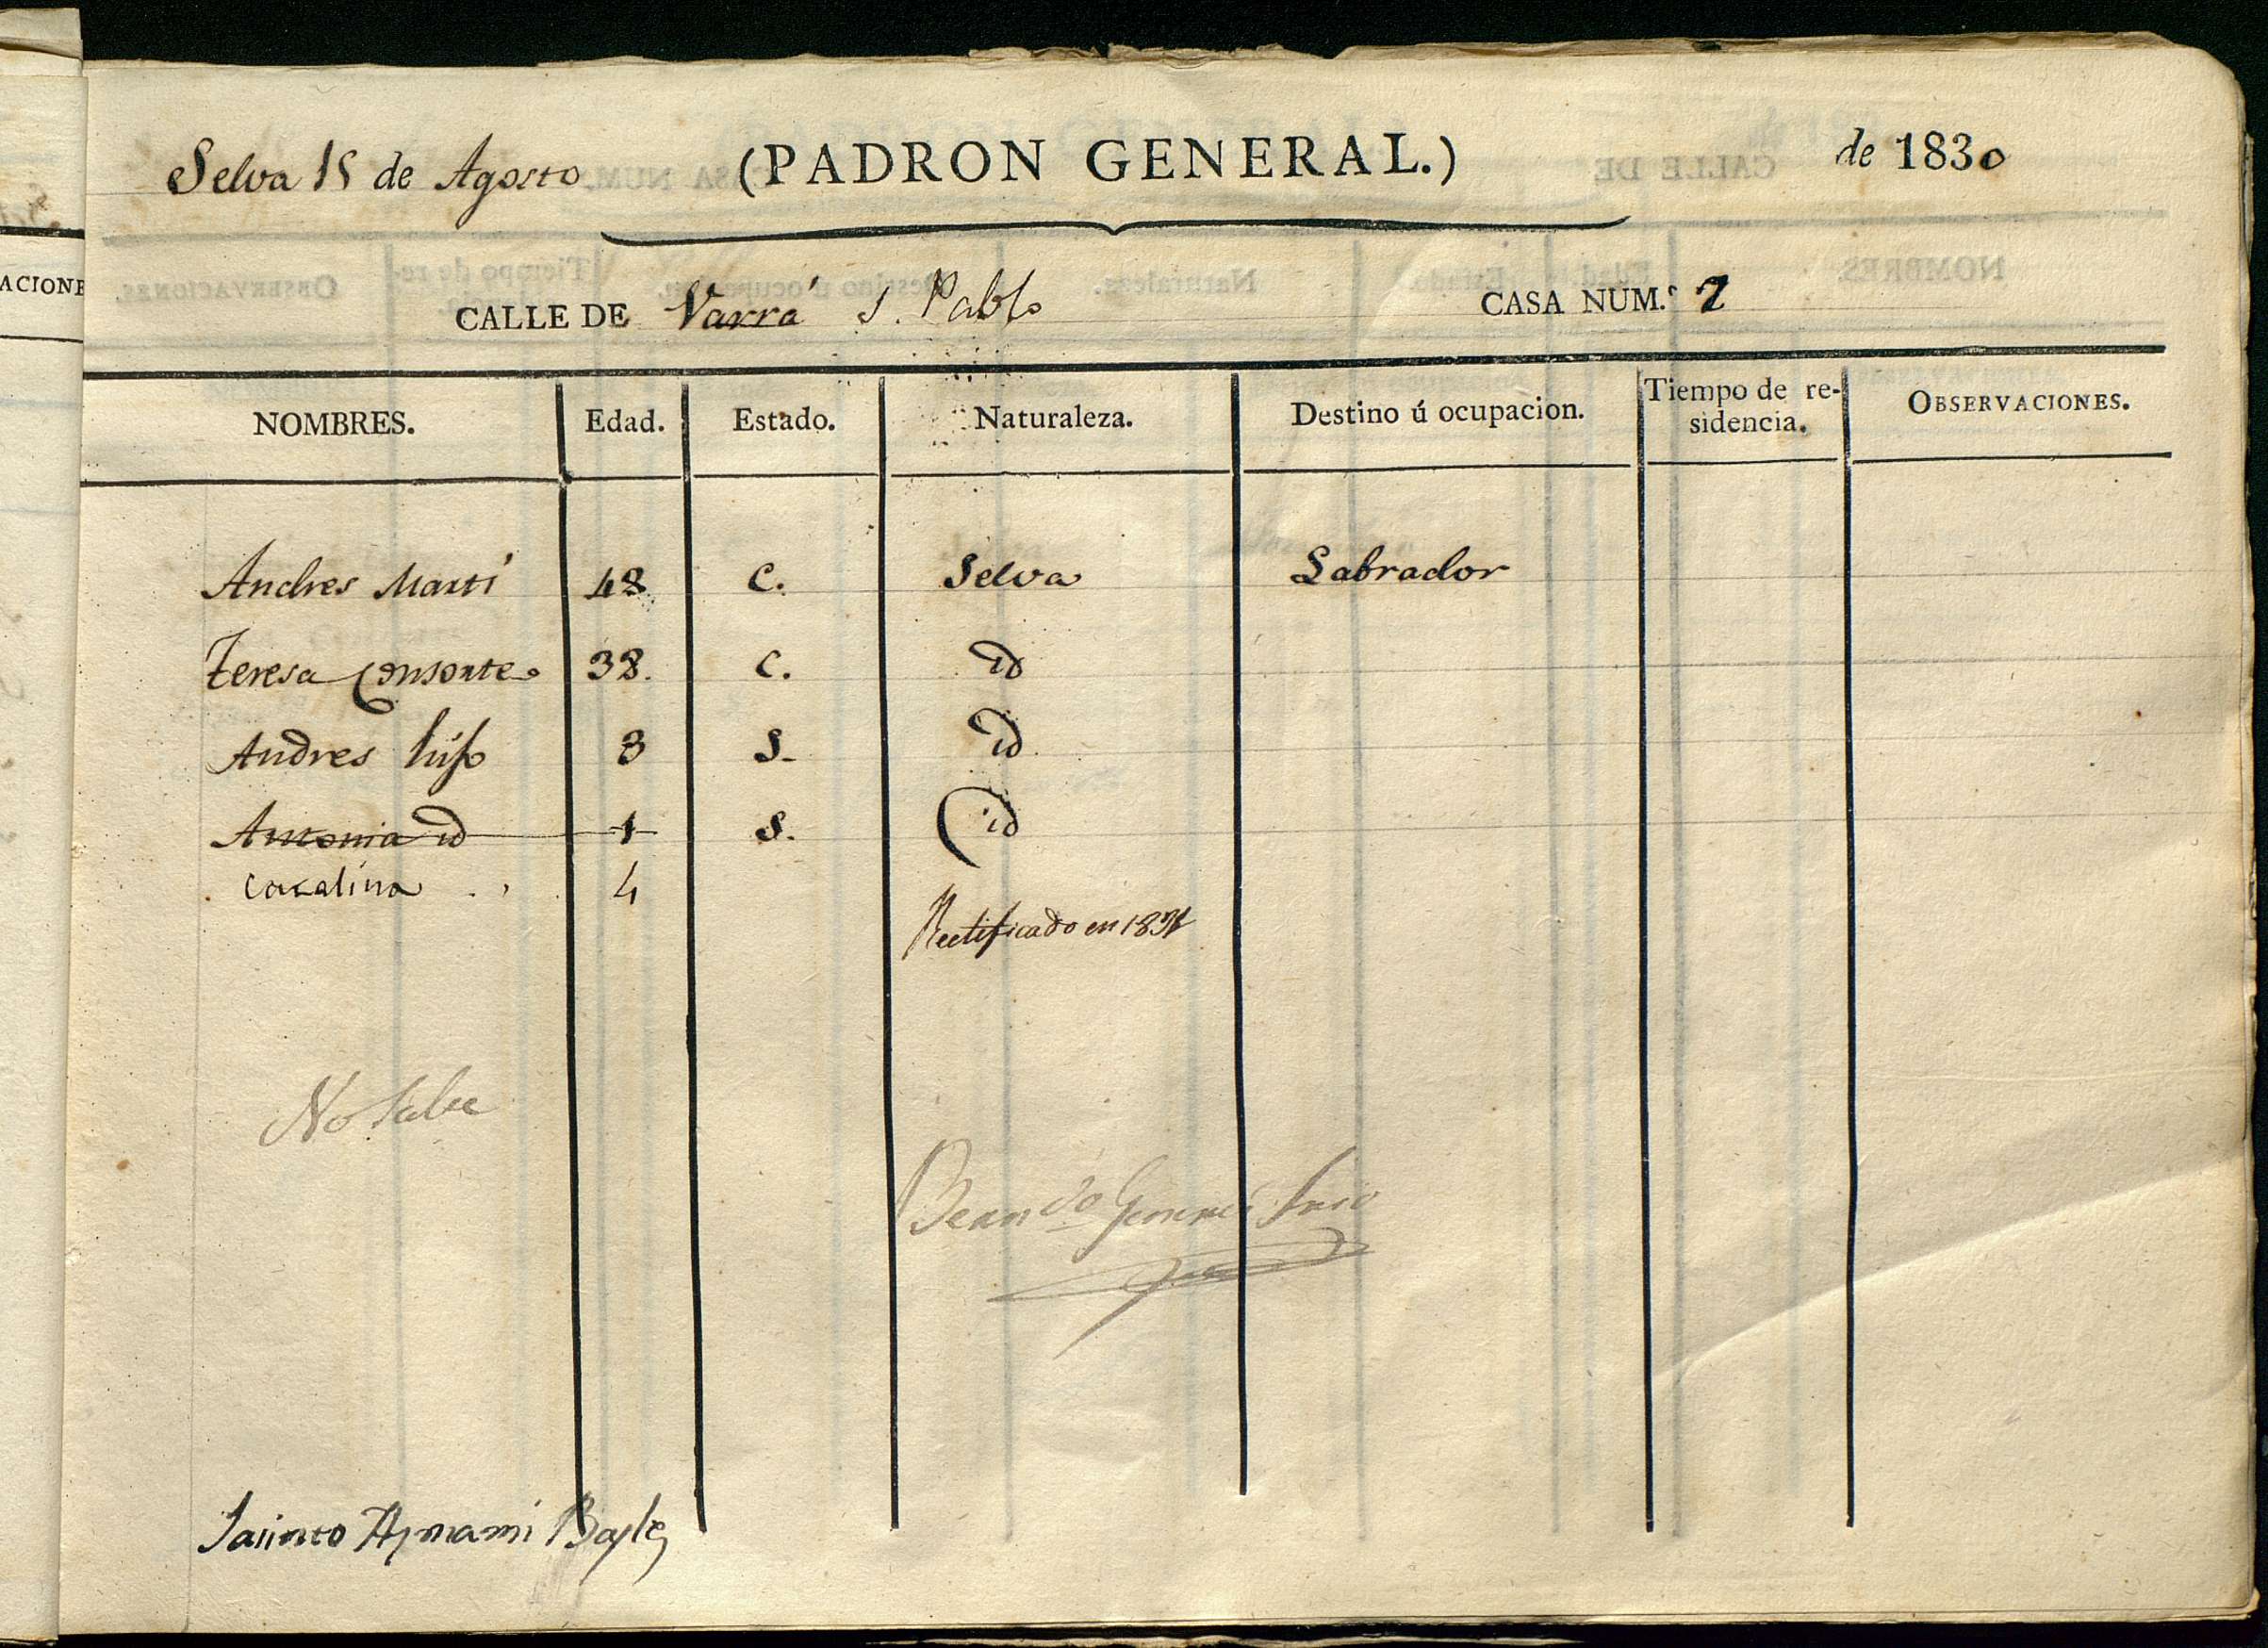 Selva 15 de Agosto (PADRON GENERAL.) de 1830
CALLE DE Varrá S. Pablo CASA NUM.º 2
NOMBRES. Edad. Estado. Naturaleza. Destino ú ocupacion. Tiempo de re-sidencia. OBSERVACIONES.
Andres Martí 48 C. Selva Labrador
Teresa Consorte 38. C. id
Andres hijo 3 S. id
Antonia id 1 S. id
Catalina 4
Rectificado en 183
No Sabe
Jacinto Aymamí Bayle